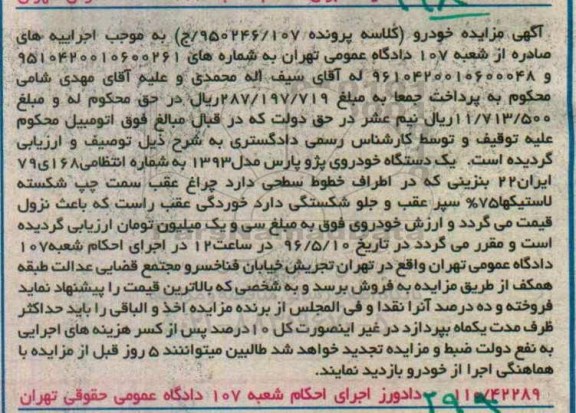 آگهی مزایده خودرو (کلاسه پرونده ۹۵۰۲۴۶/۱۰۷/ج) به موجب اجراییه های
صادره از شعبه ۱۰۷ دادگاه عمومی تهران به شماره های ۹۵۱۰۴۲۰۰۱۰۶۰۰۲۶۱
و ۹۶۱۰۴۲۰۰۱۰۶۰۰۰۴۸ له آقای سیف اله محمدی و علیه آقای مهدی شامی
محکوم به پرداخت جمعا به مبلغ ۲۸۷/۱۹۷/۷۱۹ریال در حق محکوم له و مبلغ
۱۱/۷۱۳/۵۰۰ریال نیم عشر در حق دولت که در قبال مبالغ فوق اتومبیل محکوم
علیه توقیف و توسط کارشناس رسمی دادگستری به شرح ذیل توصیف و ارزیابی
گردیده است. یک دستگاه خودروی پژو پارس مدل۱۳۹۳ به شماره انتظامی۱۶۸ی۷۹
ایران۲۲ بنزینی که در اطراف خطوط سطحی دارد چراغ عقب سمت چپ شکسته
لاستیکها۷۵% سپر عقب و جلو شکستگی دارد خوردگی عقب راست که باعث نزول
قیمت می گردد و ارزش خودروی فوق به مبلغ سی و یک میلیون تومان ارزیابی گردیده
است و مقرر می گردد در تاریخ ۹۶/۵/۱۰ در ساعت۱۲ در اجرای احکام شعبه۱۰۷
دادگاه عمومی تهران واقع در تهران تجریش خیابان فناخسرو مجتمع قضایی عدالت طبقه
همکف از طریق مزایده به فروش برسد و به شخصی که بالاترین قیمت را پیشنهاد نماید
فروخته و ده درصد آنرا نقدا و فی المجلس از برنده مزایده اخذ و الباقی را باید حداکثر
ظرف مدت یکماه بپردازد در غیر اینصورت کل ۱۰درصد پس از کسر هزینه های اجرایی
به نفع دولت ضبط و مزایده تجدید خواهد شد طالبین میتوانند ۵ روز قبل از مزایده با
هماهنگی اجرا از خودرو بازدید نمایند.
۱۱۰/۴۲۲۸۹ دادورز اجرای احکام شعبه ۱۰۷ دادگاه عمومی حقوقی تهران